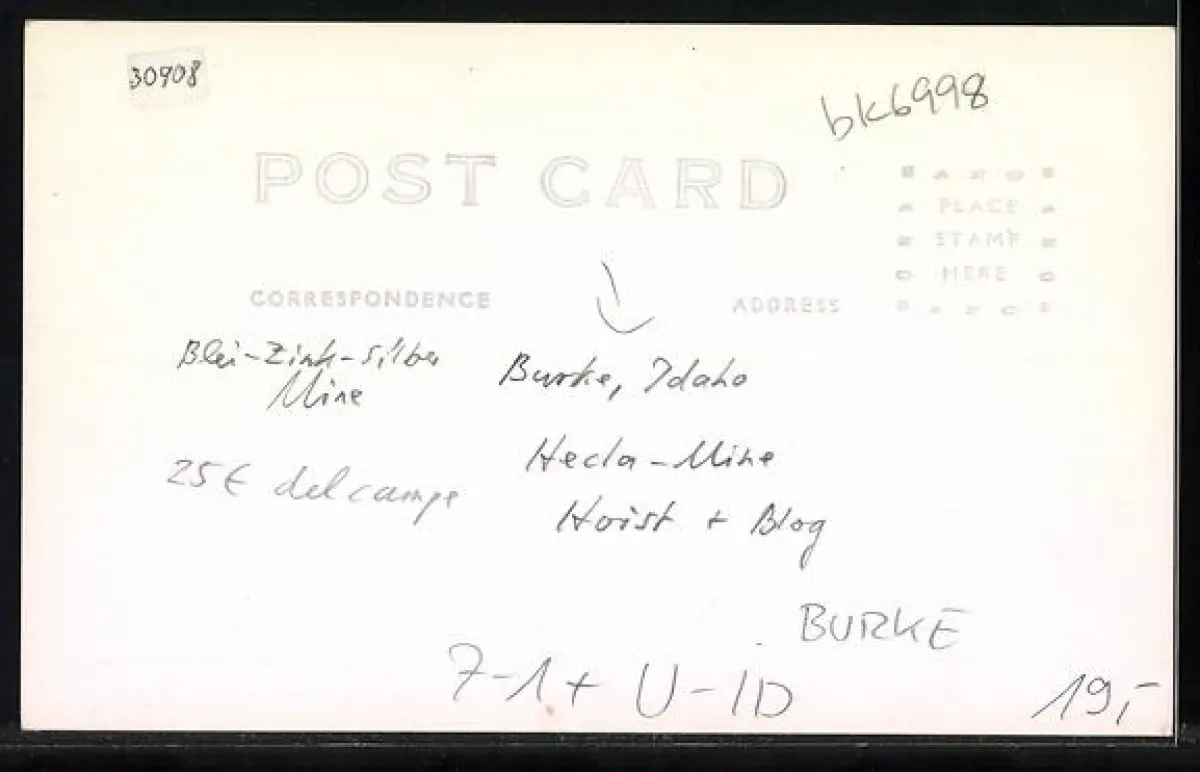 30908
bk6998
POST CARD
AZO
PLACE
STAMP
HERE
AZO
CORRESPONDENCE
ADDRESS
Blei-Zink-Silber
Mine
Burke, Idaho
Hecla-Mine
25€ delcampe
Hoist + Blog
BURKE
7-1+ U-ID
19,-